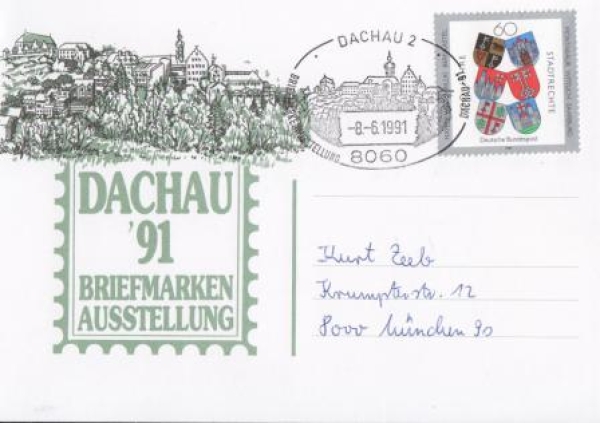 DACHAU 2
-8.-6.1991
8060
DACHAU '91
60
STADTRECHTE
Deutsche Bundespost
DACHAU
'91
BRIEFMARKEN
AUSSTELLUNG
Kurt Zeeb
Krumpterstr. 12
8000 München 90